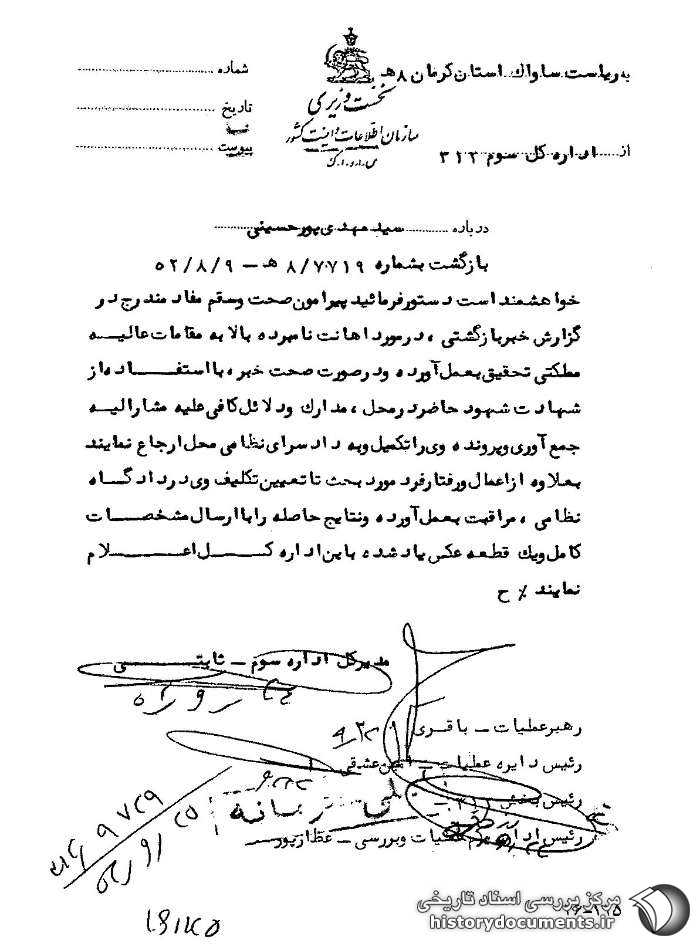 به ریاست ساواك استان کرمان ۸ هـ
از اداره کل سوم ۳۱۲
نخست وزیری
سازمان اطلاعات و امنیت کشور
س.ا.و.ا.ک
شماره
تاریخ
پیوست
درباره سید مهدی پورحسینی
بازگشت بشماره ۸/۷۰۷۱۹ هـ - ۵۲/۸/۹
خواهشمند است دستور فرمائید پیرامون صحت وسقم مفاد مندرج در
گزارش خبر بازگشتی ، در مورد اهانت نامبرده بالا به مقامات عالیه
مملکتی تحقیق بعمل آورده و در صورت صحت خبر ، با استفاده از
شهادت شهود حاضر در محل ، مدارك ودلائل کافی علیه مشارالیه
جمع آوری وپرونده وی را تکمیل وبه دادسرای نظامی محل ارجاع نمایند
بعلاوه از اعمال ورفتار فرد مورد بحث تا تعیین تکلیف وی در دادگاه
نظامی ، مراقبت بعمل آورده ونتایج حاصله را با ارسال مشخصات
کامل ویك قطعه عکس یاد شده باین اداره کل اعلام
نمایند ٪ ح
مدیرکل اداره سوم - ثابتی
رهبر عملیات - باقری
رئیس دایره عملیات - عشقی
رئیس بخش ۳۱۲ -
رئیس اداره عملیات وبررسی - عطارپور
مرکز بررسی اسناد تاریخی
historydocuments.ir